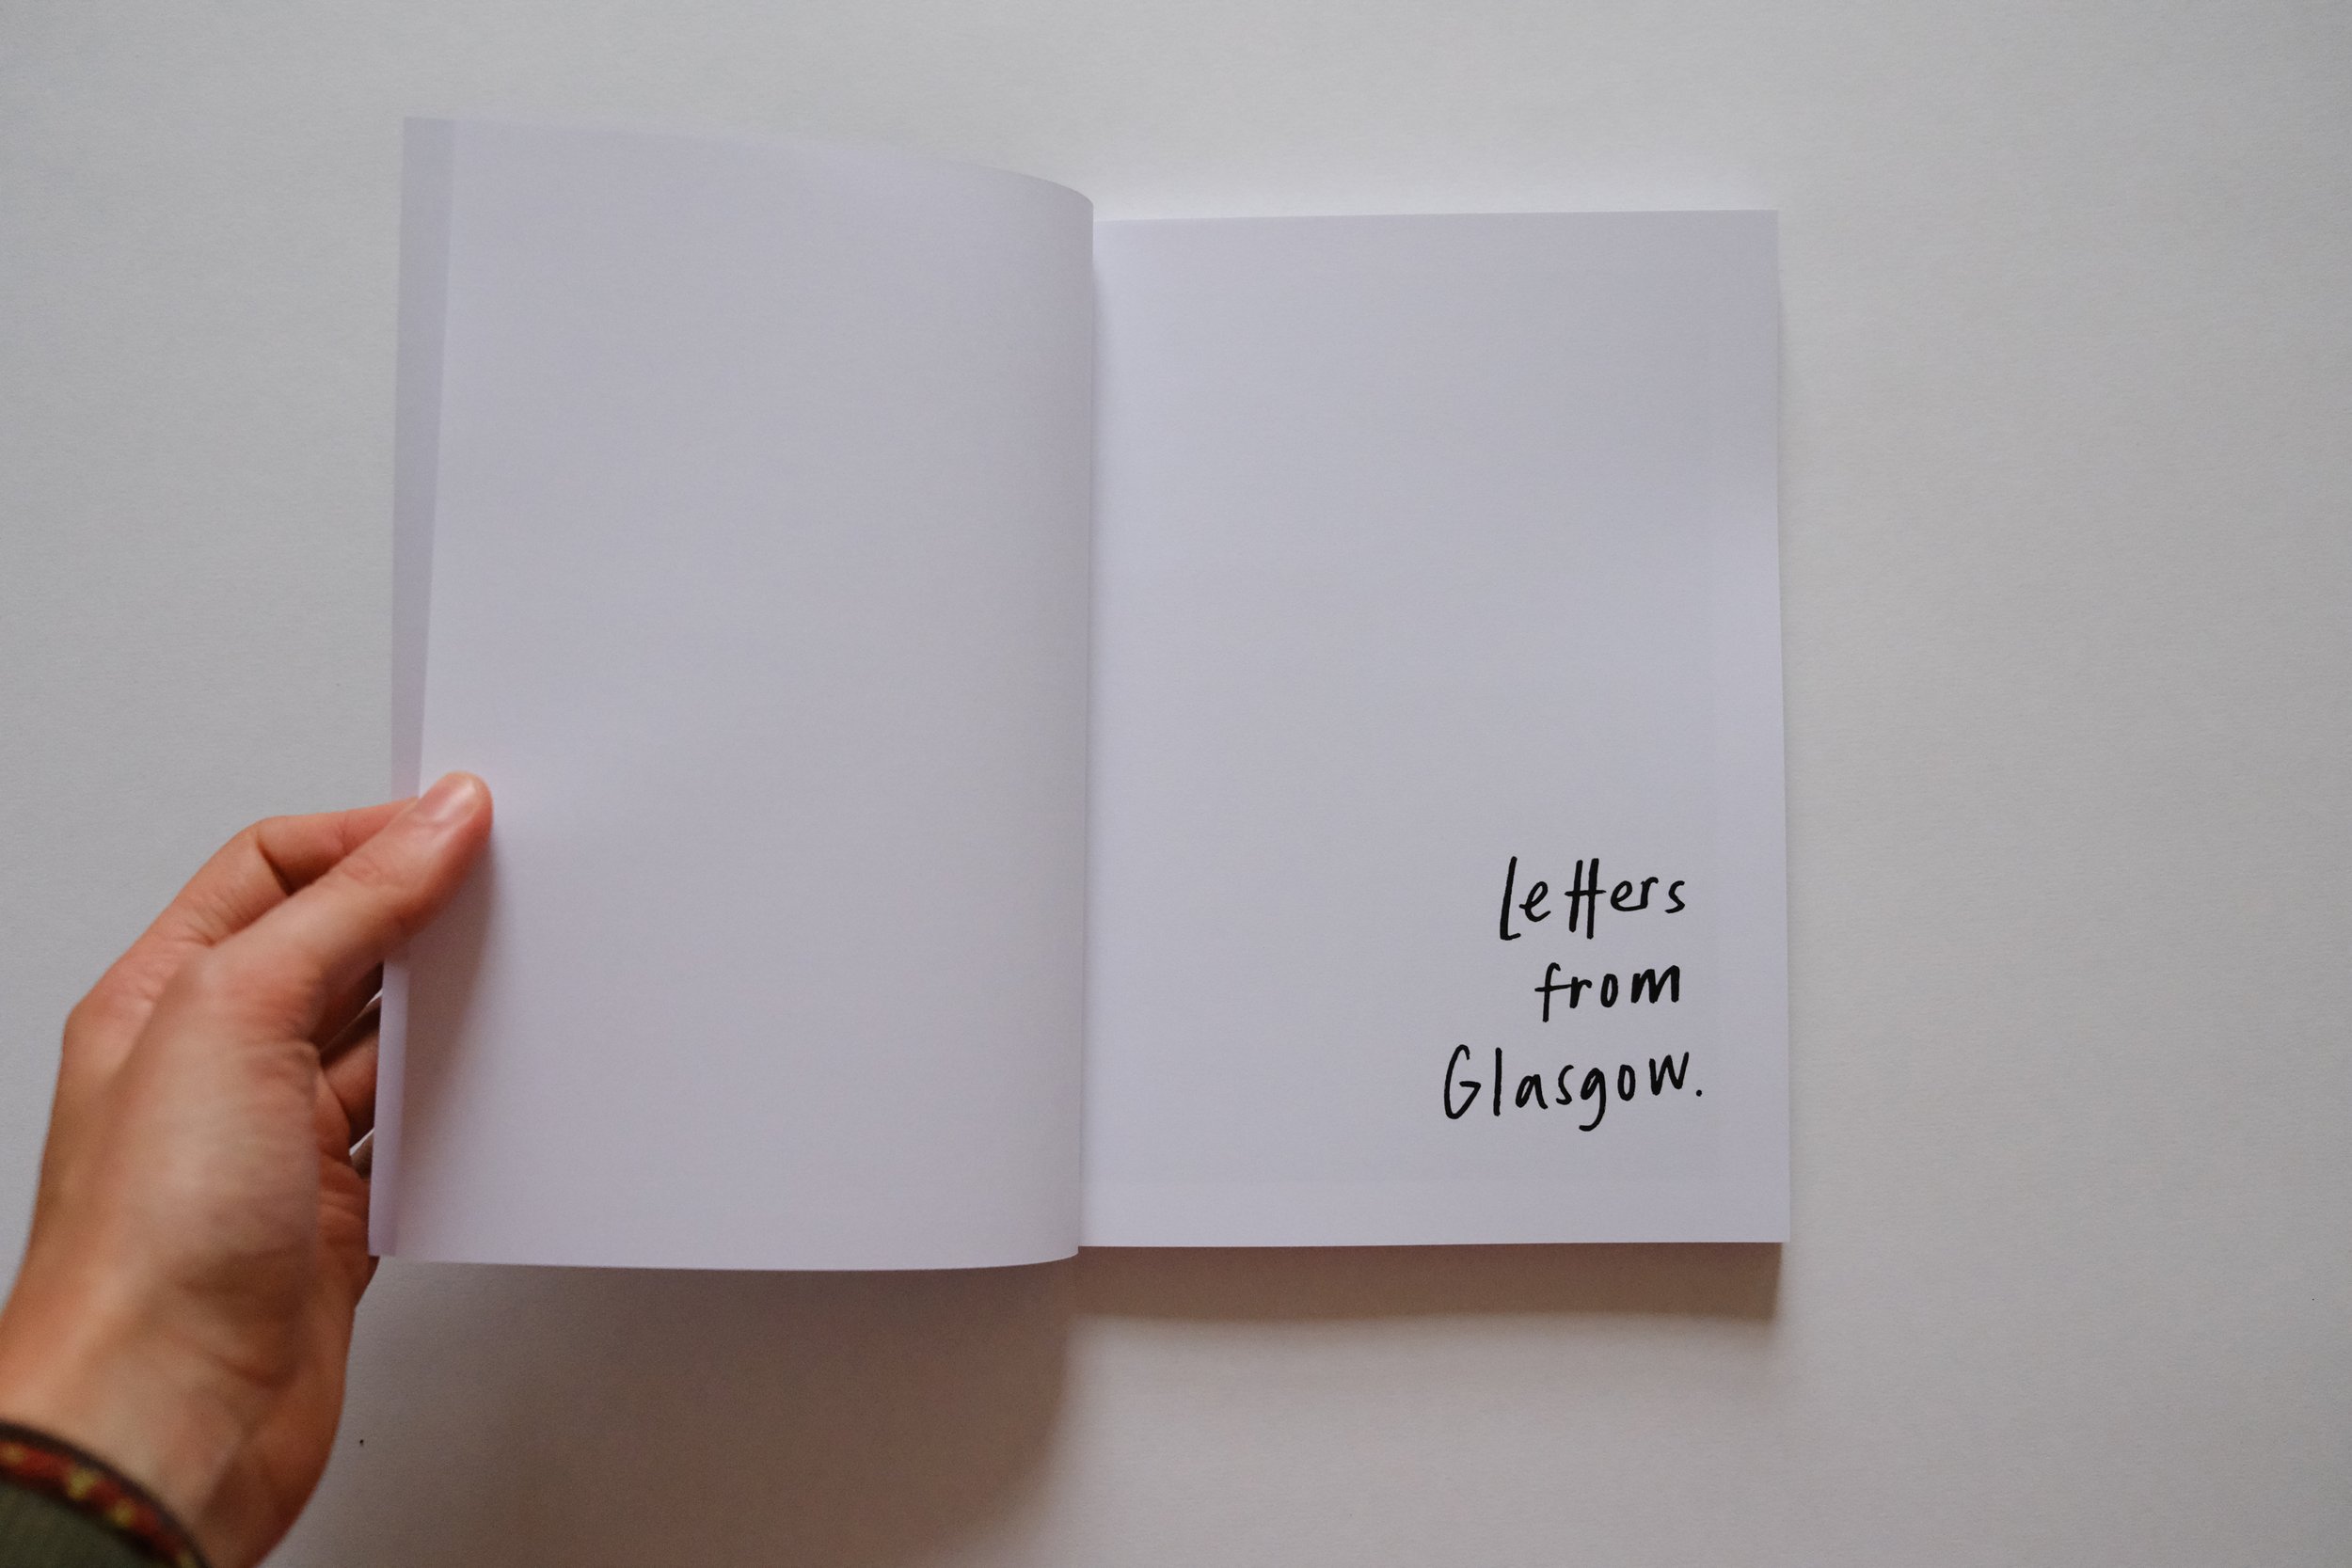 Letters
from
Glasgow.